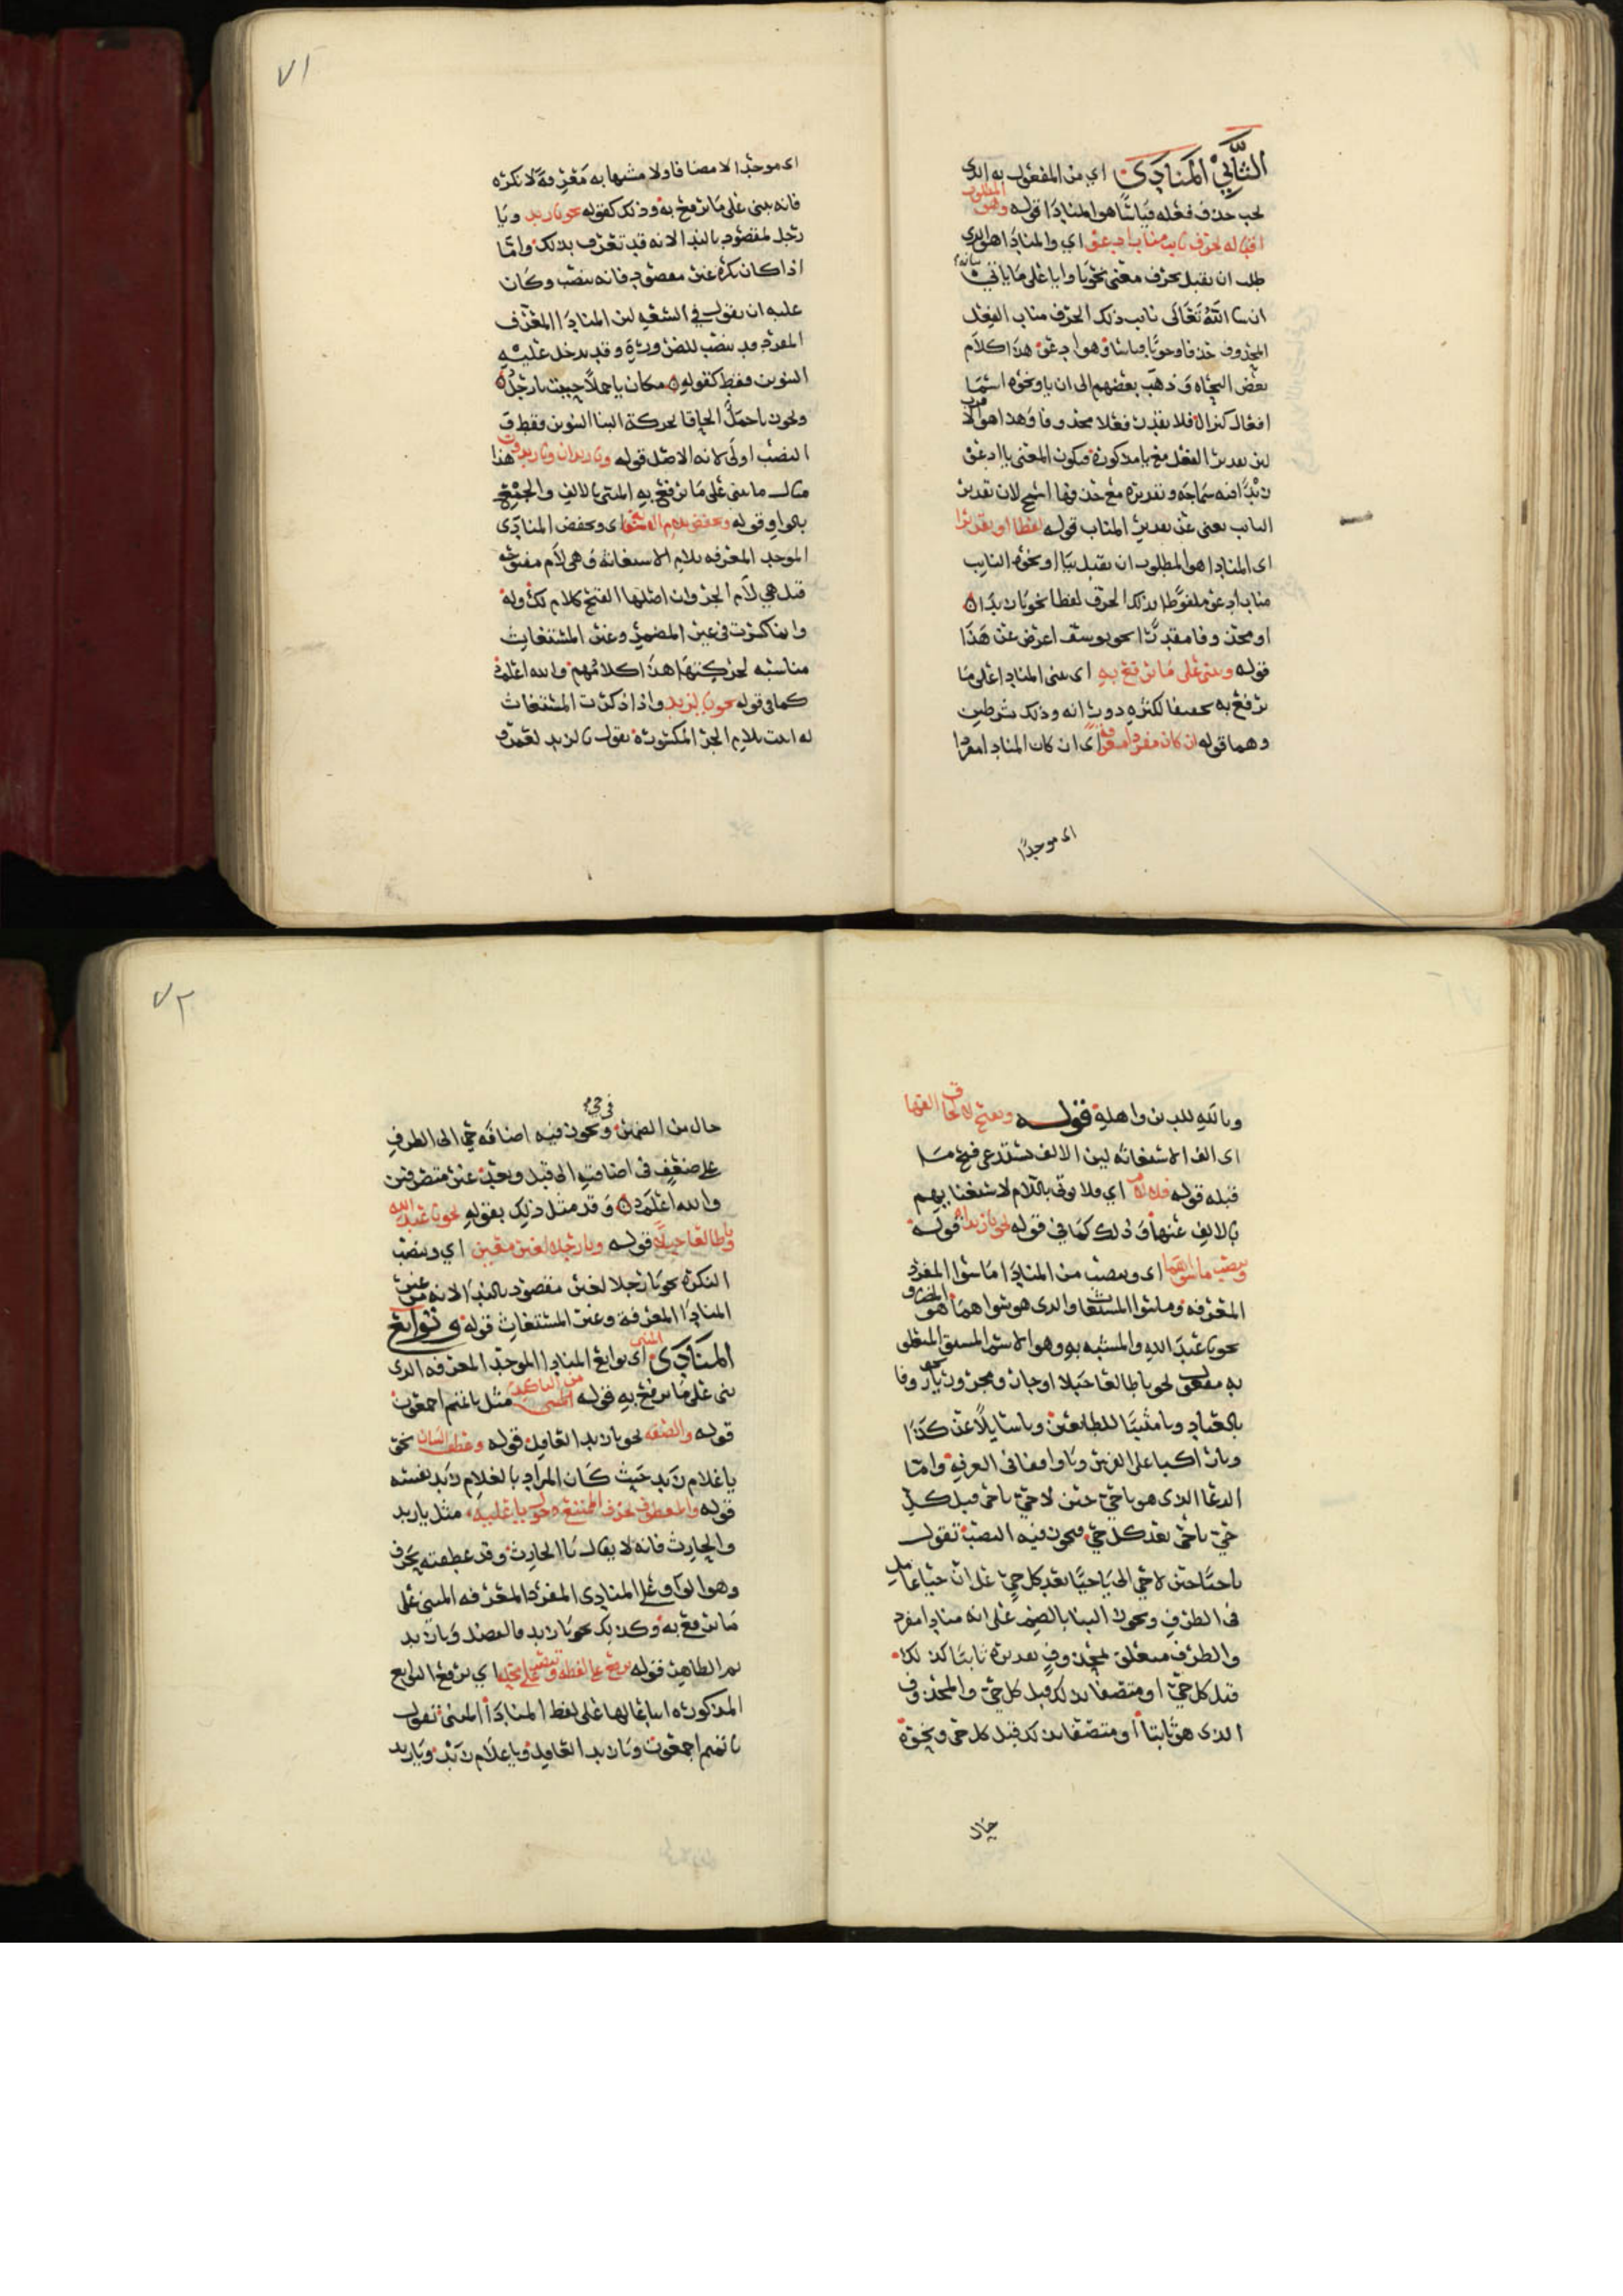 الثَّاني المنَادَى اي من المفعول به الذي
يجب حذف فعله قياسًا هو المنادا قوله وهو المطلوب
اقباله بحرف نايب مناب ادعو اي والمنادا هو الذي
طلب ان يقبل بحرف معنى نحو يا وايا على ما ياتي بيانه
ان شا الله تعَالى ناب ذلك الحرف مناب الفِعْل
المحذوف حذفا وجوبًا قياسًا وهو ادعو هذا كلام
بعض النحاه وَذهب بعضهم الى ان يا ونحوه اسمَا
افعال كنزال فلا يقدر فعلا محذوفا وهذا هو الا
لين تقدير الفعل مع يا مذكورة فيكون المعنى يا ادعو
زيدًا فيه سماجه وتقديره مع حذفها اسمج لان تقدير
النايب يغني عن تقدير المناب قوله لفظا او تقديرا
اي المنادا هو المطلوب ان يقبل بيا او نحوه النايب
مناب ادعو ملفوظا بذلك الحرف لفظا نحو يا زيدان
او محذوفا مقدرًا نحو يوسف اعرض عن هَذَا
قوله ويبنى على مَا يرفع بهِ اي يبنى المنادا على مَا
يرفع به
وهما قوله ان كان مفردا معرفة اي ان كان المنادا مفردا
اي موحدًا
٧١
اي موحدًا لا مضافا ولا مشبها به مَعْرفةً لا نكره
فانه يبنى على مَا يرفع به وذلك كقوله نحو يا زيد ويَا
رجل لمقصود بالندا لانه قد تعرف بذلك وامّا
اذا كان نكره غير مقصود فانه ينصب وكَان
عليه ان يقول في الشعر لين المنادَا المعرَّف
المفرد قد ينصب للضرورة وقد يدخل عليه
التنوين فقط كقوله مكان يا جملاً حييت يا رجلُ
ونحوز يا جملٌ الحاقا لحركة البنا التنوين فقط و
النصب اولى لانه الاصل قوله ويا زيدان ويا زيدون هذا
مثال ما يبنى على مَا يرفع بهِ المثنى بالالف والجمع
بالواو قوله ويخفض بلام الاستغاثة اي ويخفض المنادَى
الموحد المعرفه بلام الاستغاثة وَهي لام مفتوحه
قيل هي لام الجر وان اصلها الفتح كلام لك وله
وانما كسرت في غير المضمر وغير المستغاث
مناسبه لحركتهَا هذا كلامُهم والله اعلم
كما في قوله نحو يا لزيد واذا ذكرت المستغاث
له اتيت بلام الجر المكسورة تقول يا لزيد لعمرو
ويا لَلهِ للدين واهلهِ قوله ويفتح لالحاق الفها
اي الف الاستغاثه لين الالف تستدعي فتح مَا
قبله قوله فلا لام اي ولا يوتى باللام لاستغنايهم
بالالف عنها وَذلك كمَا في قوله نحو يا زيداه قوله
وينصب ما سواهما اي وينصب من المنادَا مَا سوا المفرد
المعرفه وما سوا المستغاث والذي هو سواهمَا هو المضاف
نحو يا عبدَ الله والمشبه به وهو الاسم المستق المتعلق
به مفعول نحو يا طالعا جبلا او جار ومجرور نحو يا رؤفا
بالعباد ويا مثيبًا للطايعين ويا سايلاً عن كذا
ويا راكبا على الفرس ويَا واقفا في الغرفه وامّا
الدعا الذي هو يا حي حين لا حي يا حي قبل كل
حي يا حي بعد كل حي فيجوز فيه النصب تقول
يا حيًّا حين لا حي الى يَا حيًّا بعد كل حيٍّ على ان حيًّا عامل
في الظرف ويجوز البنا بالضم على انه منادا مفرد
والظرف متعلق بمحذوفٍ تقديره ثابتًا كذلك
قبل كل حيّ او متصفا بذلك قبل كل حيّ والمحذوف
الذي هو ثابتا او متصفا بذلك قبل كل حي ونحوه
حَال
٧٢
حال من الضمير ونحوز فيه اضافه حي الى الظرف في حي
على ضعفٍ في اضافته الى قبل وبعد غير متصرفين
والله اعلم وَقد مثل ذلك بقوله نحو يا عبد الله
ويا طالعا جبلاً قوله ويا رجلا لغير معين اي وينصب
النكره نحو يَا رجلا لغير مقصود بالندَا لانه غير
المنادَا المعرفة وغير المستغاث قوله وتوابع
المنَادَى المبنى اي توابع المنادا الموحد المعرفه الذي
بنى على مَا يرفع به قوله من التاكيد مثل يا تميم اجمعون
قوله والصفه نحو يا زيد العاقل قوله وعطف البيان نحو
يا غلام زيد حَيث كَان المراد بالغلام زيد نفسه
قوله والمعطوف بحرف الممتنع دخول يا عليه مثل يا زيد
والحارث فانه لا يقال يَا الحارث وقد عطفته بحرف
وهو الواو على المنادى المفرد المعرفه المبني على
مَا يرفع به وكذلك نحو يَا زيد والفضل وَيا زيد
قوله يرفع على لفظه وينصب على محله اي يرفع التوابع
المذكوره اتباعا لها على لفظ المنادَا المبنى تقول
يا تميم اجمعون ويَا زيد العاقل ويا غلام زيد ويَا زيد